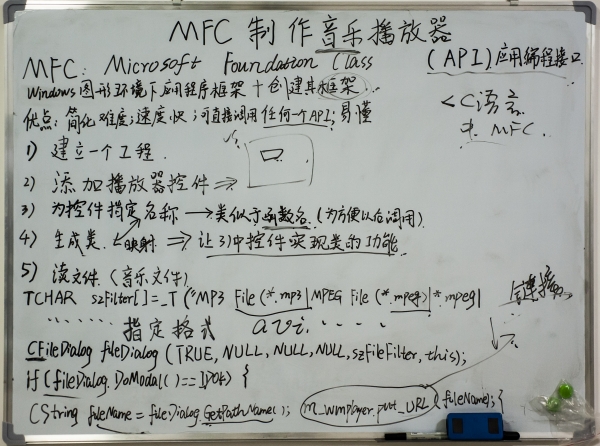 MFC 制作音乐播放器
MFC: Microsoft Foundation Class
(API)应用编程接口.
Windows 图形环境下应用程序框架 + 创建其框架.
优点: 简化难度;速度快;可直接调用任何一个API;易懂
<C语言
MFC.
1) 建立一个工程.
2) 添加播放器控件 ⇒
3) 为控件指定名称 → 类似于函数名.(为方便以后调用)
4) 生成类. 映射 ⇒ 让3)中控件实现类的功能
5) 读文件.(音乐文件)
TCHAR szFilter[]=_T("MP3 File (*.mp3|MPEG File (*.mpeg)|*.mpeg|
连接
...... 指定格式 avi.....
CFileDialog fileDialog (TRUE, NULL, NULL, NULL, szFileFilter, this);
If (fileDialog.DoModal()==IDOK) {
CString fileName = fileDialog.GetPathName(); m_wmplayer.put_URL(fileName); }